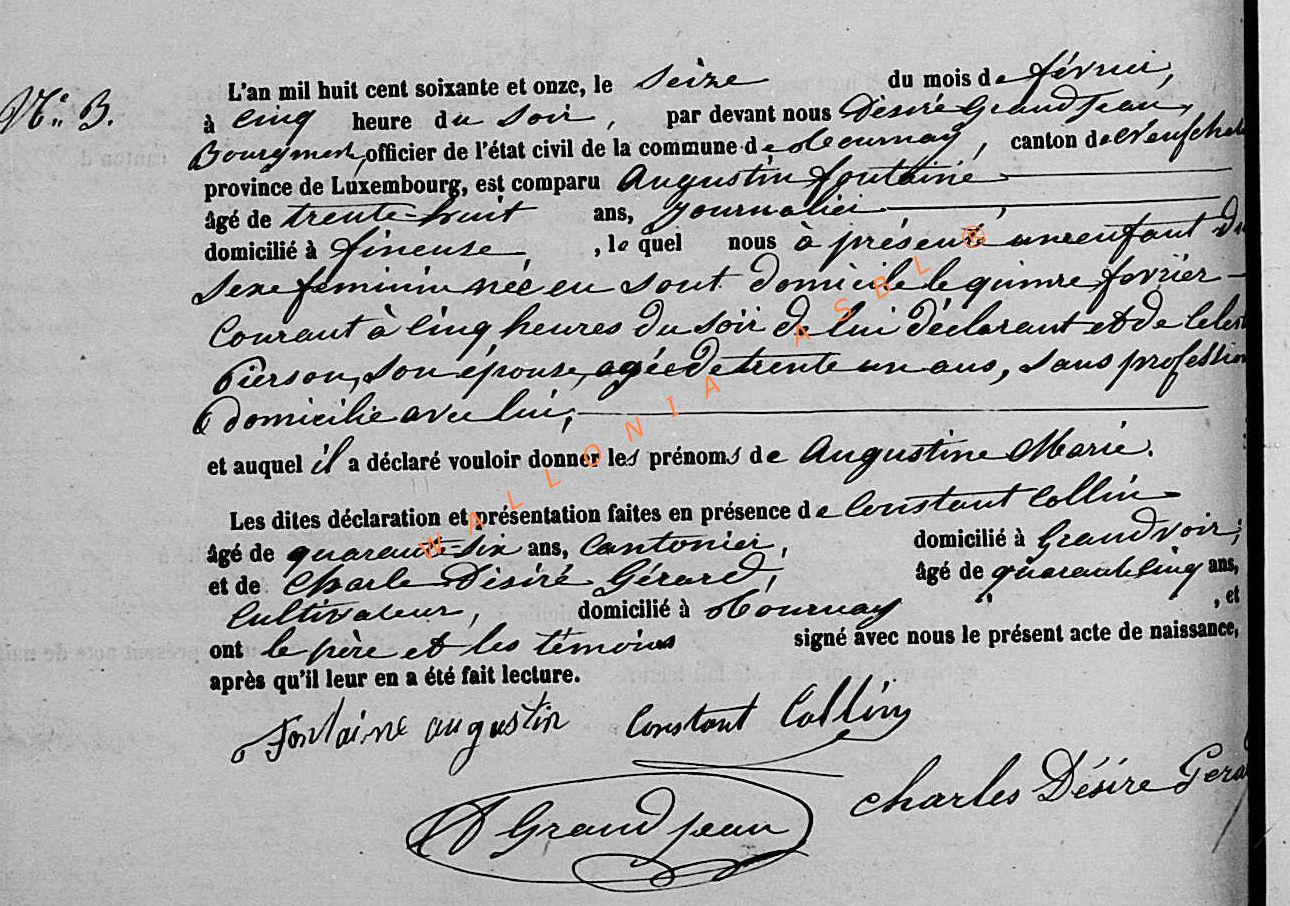 N° 3.
L'an mil huit cent soixante et onze, le seize du mois de février,
à cinq heure du soir, par devant nous Désiré GrandJean,
Bourgmest, officier de l'état civil de la commune de Tournay, canton de Neufchat
province de Luxembourg, est comparu Augustin fontaine
âgé de trente-huit ans, journalier,
domicilié à fineuse, , le quel nous à présenté un enfant du
sexe feminin née en sont domicile le quinze fevrier
Courant à cinq heures du soir de lui déclarant et de Celest
Pierson, son épouse, agée de trente un ans, sans profession
domicilie avec lui,
et auquel il a déclaré vouloir donner les prénoms de Augustine Marie.
Les dites déclaration et présentation faites en présence de Constant Collin
âgé de quarante-six ans, Cantonier, domicilié à Grandvoir,
et de Charle Désiré Gérard, âgé de quarante cinq ans,
Cultivateur, domicilié à Tournay , et
ont le père et les témoins signé avec nous le présent acte de naissance,
après qu'il leur en a été fait lecture.
Fontaine augustin Constant Collin
Charles Désiré Gera
D GrandJean
WALLONIA ASBL